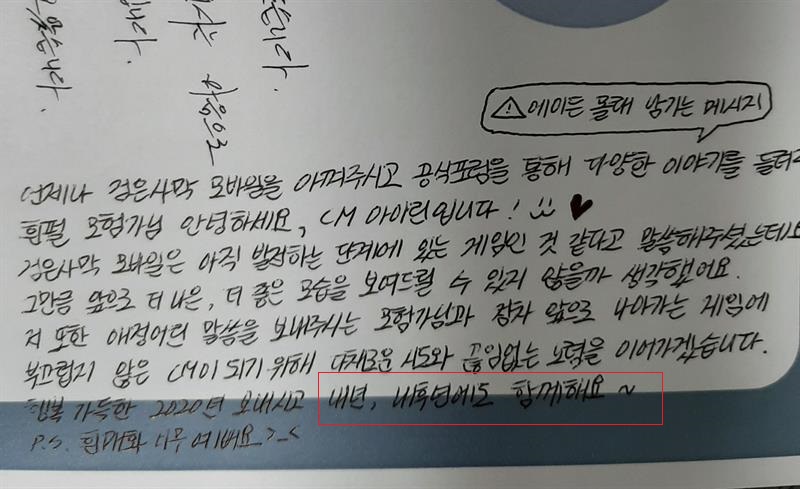 습니다.
마음으로
입니다.
습니다.
⚠ 에이든 몰래 남기는 메시지
언제나 검은사막 모바일을 아껴주시고 공식포럼을 통해 다양한 이야기를 들려
모험가님 안녕하세요, CM 아아린입니다! ♥
검은사막 모바일은 아직 발전하는 단계에 있는 게임인 것 같다고 말씀해주셨는데요
그만큼 앞으로 더 나은, 더 좋은 모습을 보여드릴 수 있지 않을까 생각했어요.
저 또한 애정어린 말씀을 보내주시는 모험가님과 장차 앞으로 나아가는 게임에
부끄럽지 않은 CM이 되기 위해 다채로운 시도와 끊임없는 노력을 이어가겠습니다.
행복 가득한 2020년 보내시고 내년, 내후년에도 함께해요 ~
P.S. 너무 예뻐요 >_<